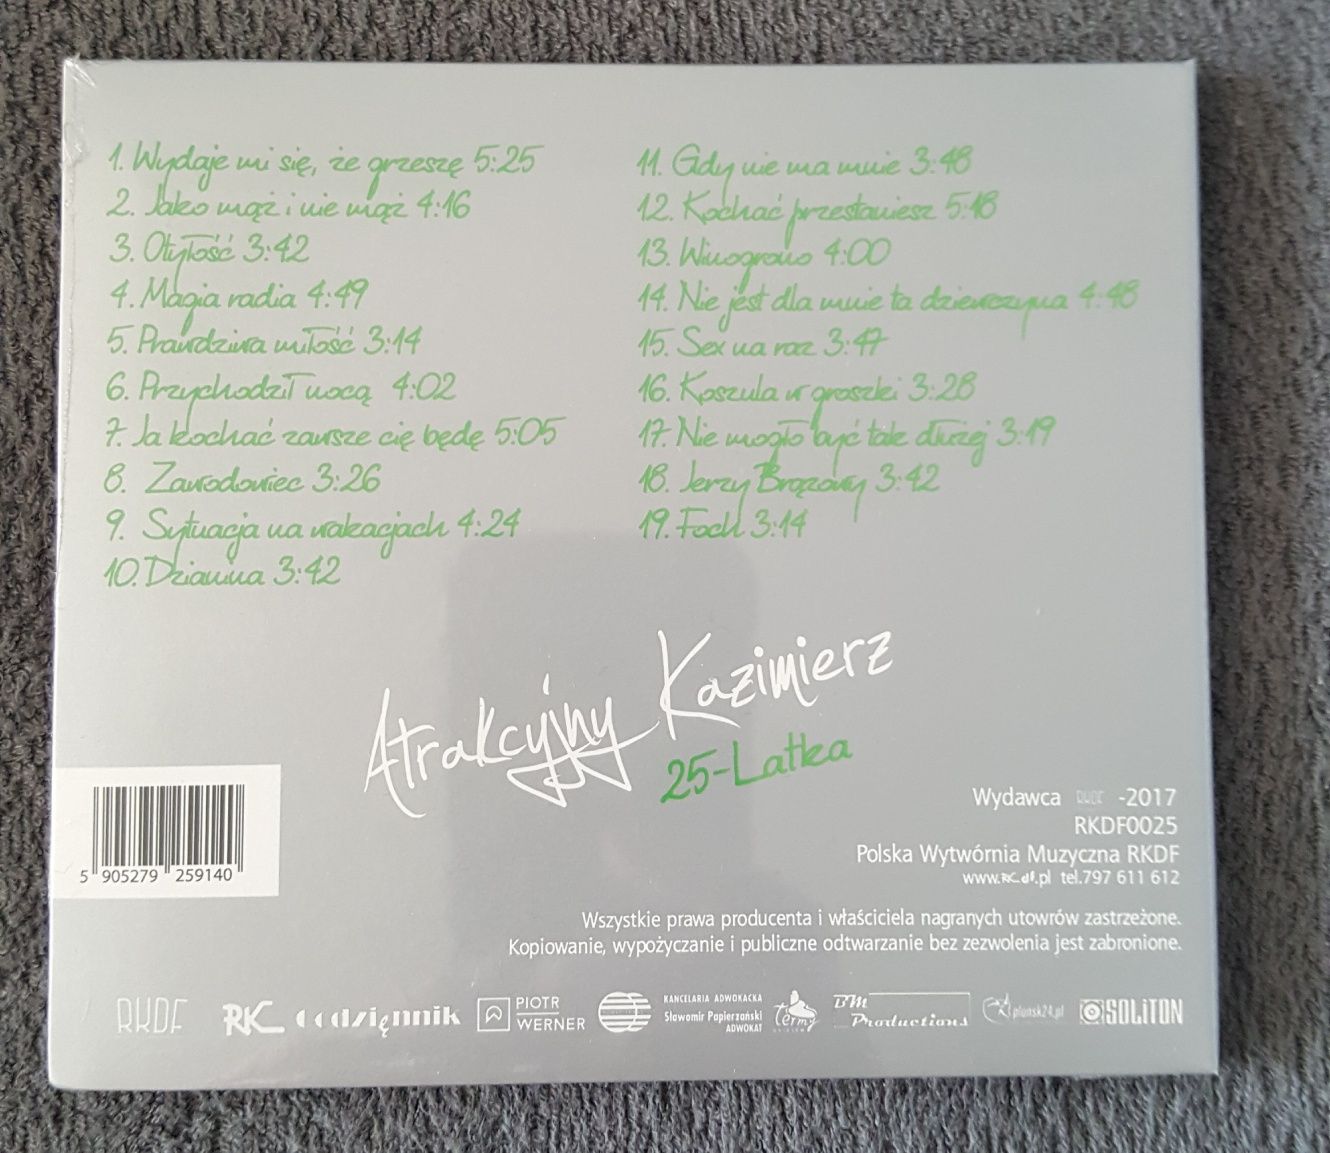 1. Wydaje mi się, że grzeszę 5:25
2. Jako mąż i nie mąż 4:16
3. Otyłość 3:42
4. Magia radia 4:49
5. Prawdziwa miłość 3:14
6. Przychodził nocą 4:02
7. Ja kochać zawsze cię będę 5:05
8. Zawodowiec 3:26
9. Sytuacja na wakacjach 4:24
10. Dzianina 3:42
11. Gdy nie ma mnie 3:48
12. Kochać przestaniesz 5:18
13. Winogrono 4:00
14. Nie jest dla mnie ta dziewczyna 4:48
15. Sex na raz 3:47
16. Koszula w groszki 3:28
17. Nie mogło być tak dłużej 3:19
18. Jerzy Brązowy 3:42
19. Foch 3:14
Atrakcyjny Kazimierz
25-Latka
Wydawca RKDF -2017
RKDF0025
Polska Wytwórnia Muzyczna RKDF
www.RCdf.pl tel.797 611 612
5 905279 259140
Wszystkie prawa producenta i właściciela nagranych utowrów zastrzeżone.
Kopiowanie, wypożyczanie i publiczne odtwarzanie bez zezwolenia jest zabronione.
RKDF
RK
dziennik
PIOTR
WERNER
KANCELARIA ADWOKACKA
Sławomir Papierzański
ADWOKAT
termy
BM
Productions
plonsk24.pl
SOLITON